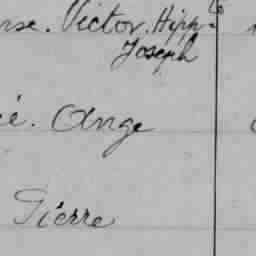 nse. Victor. Hipp.te
Joseph
é. Ange
Pierre